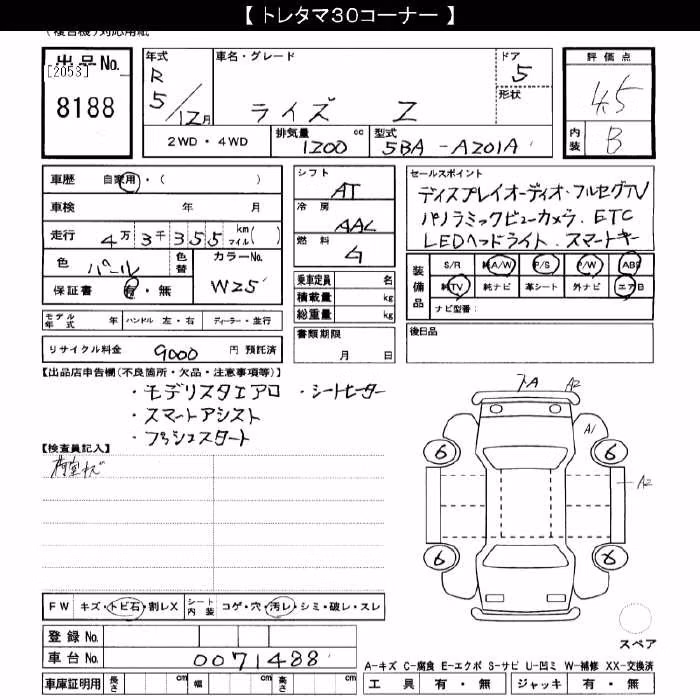 【 トレタマ30コーナー 】
(複合機)対応用紙
出品No.
[2053]
8188
年式
R
5/12月
車名・グレード
ライズ Z
ドア
5
形状
評価点
4.5
内装
B
2WD・4WD
排気量 1200 cc
型式 5BA-A201A
車歴 自家用・( )
車検 年 月
走行 4万3千355 km マイル( )
色 パール
色替
カラーNo. W25
保証書 有・無
モデル年式 年
ハンドル 左・右
ディーラー・並行
リサイクル料金 9000 円 預託済
シフト
AT
冷房
AAC
燃料
ガ
乗車定員 名
積載量 kg
総重量 kg
書類期限
月 日
セールスポイント
ディスプレイオーディオ・フルセグTV
パノラミックビューカメラ. ETC
LEDヘッドライト. スマートキー
装備品
S/R 純A/W P/S P/W ABS
純TV 純ナビ 革シート 外ナビ エアB
ナビ型番:
後日品
【出品店申告欄(不良箇所・欠品・注意事項等)】
・モデリスタエアロ ・シートヒーター
・スマートアシスト
・プッシュスタート
【検査員記入】
荷室キズ
FW キズ・トビ石・割レX
シート内装 コゲ・穴・汚レ・シミ・破レ・スレ
登録No.
車台No. 0071488
車庫証明用 長さ cm 幅 cm 高さ cm
A A2
A1
6 6
A2
6 6
スペア
A-キズ C-腐食 E-エクボ S-サビ U-凹ミ W-補修 XX-交換済
工具 有・無 ジャッキ 有・無